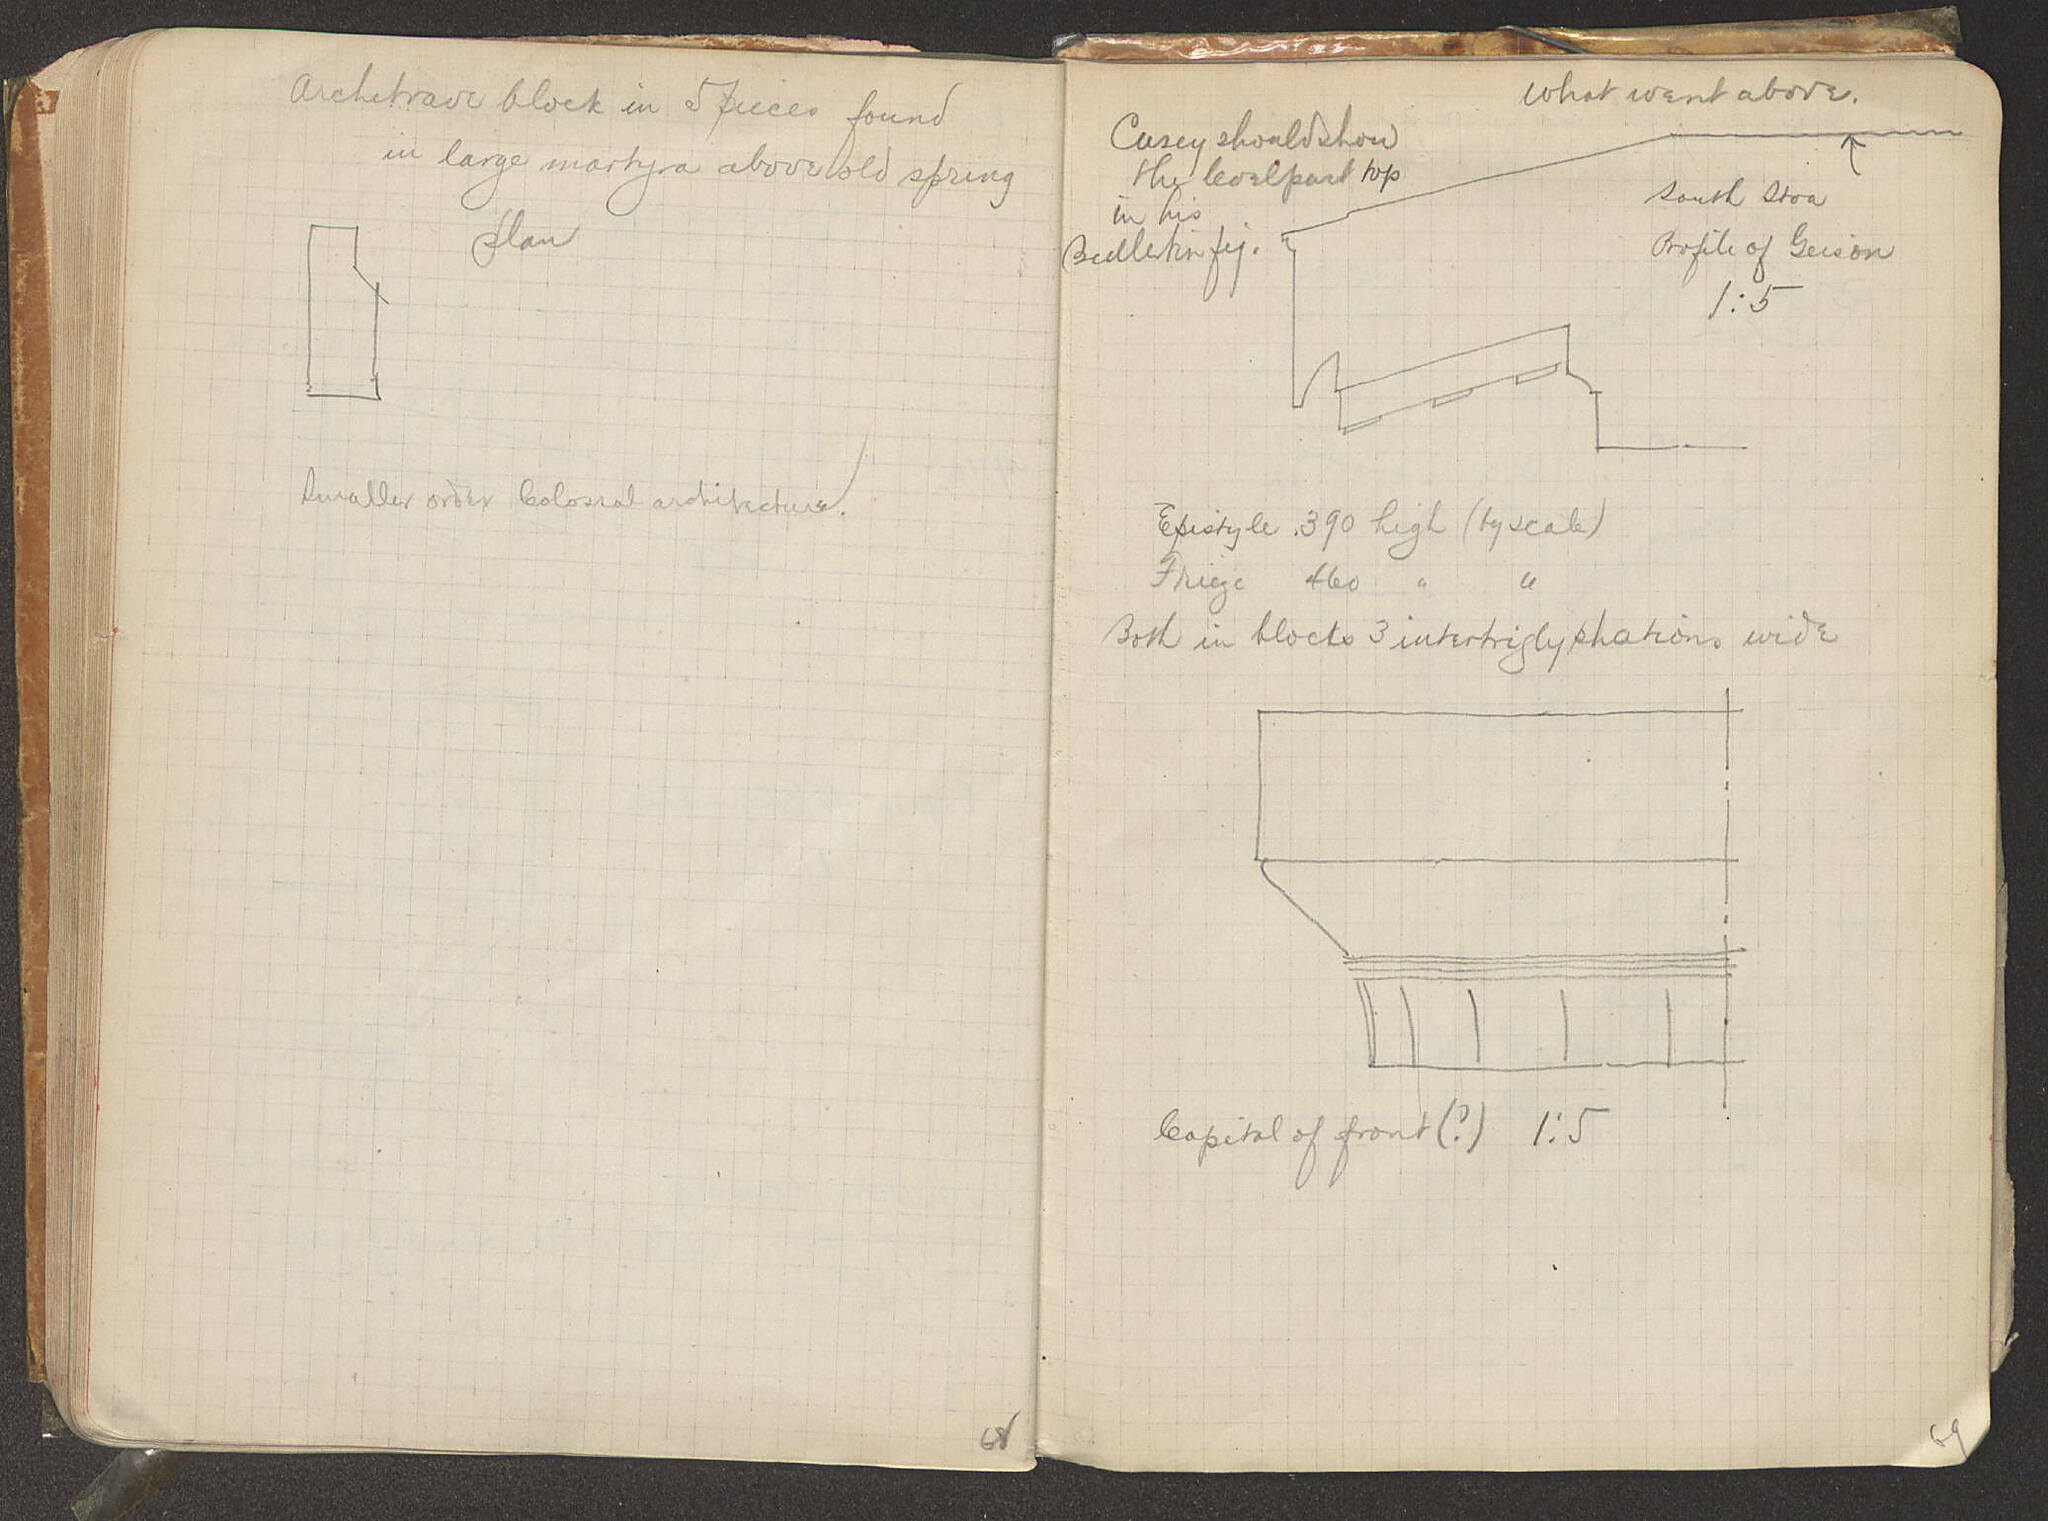 Architrave block in 5 pieces found
in large martyra above old spring
plan
Smaller order Colossal architecture.
68
what went above.
Casey should show
the level part top
in his
Bulletin fig.
South Stoa
Profile of Geison
1:5
Epistyle .390 high (by scale)
Frieze 460 " "
Both in blocks 3 intertriglyphations wide
Capital of front (?) 1:5
69